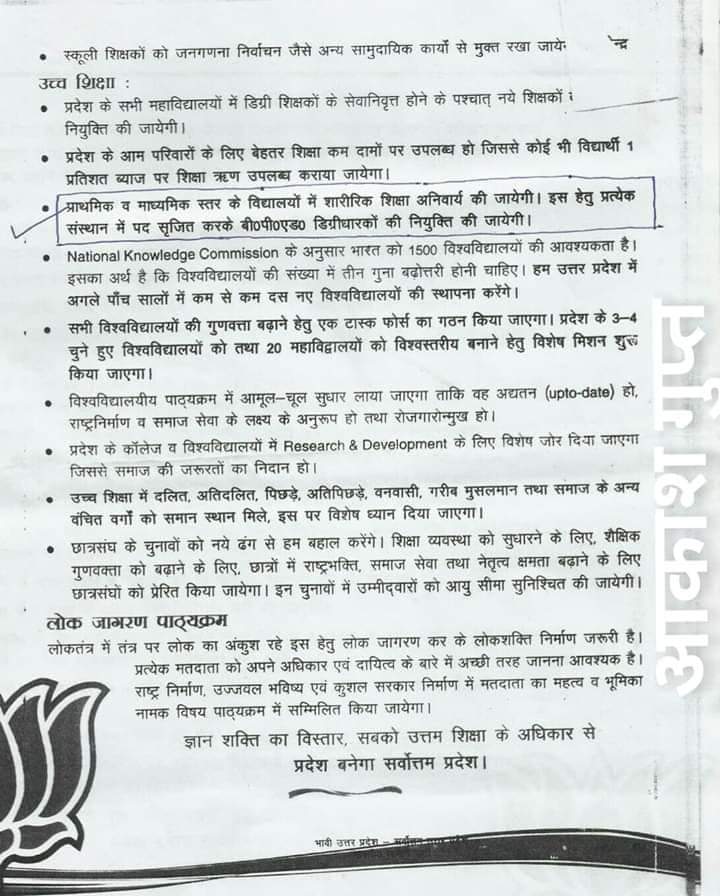 • स्कूली शिक्षकों को जनगणना निर्वाचन जैसे अन्य सामुदायिक कार्यो से मुक्त रखा जाये
उच्च शिक्षा :
• प्रदेश के सभी महाविद्यालयों में डिग्री शिक्षकों के सेवानिवृत्त होने के पश्चात् नये शिक्षकों
नियुक्ति की जायेगी।
• प्रदेश के आम परिवारों के लिए बेहतर शिक्षा कम दामों पर उपलब्ध हो जिससे कोई भी विद्यार्थी 1
प्रतिशत ब्याज पर शिक्षा ऋण उपलब्ध कराया जायेगा।
• प्राथमिक व माध्यमिक स्तर के विद्यालयों में शारीरिक शिक्षा अनिवार्य की जायेगी। इस हेतु प्रत्येक
संस्थान में पद सृजित करके बी0पी0एड0 डिग्रीधारकों की नियुक्ति की जायेगी।
• National Knowledge Commission के अनुसार भारत को 1500 विश्वविद्यालयों की आवश्यकता है।
इसका अर्थ है कि विश्वविद्यालयों की संख्या में तीन गुना बढ़ोत्तरी होनी चाहिए। हम उत्तर प्रदेश में
अगले पाँच सालों में कम से कम दस नए विश्वविद्यालयों की स्थापना करेंगे।
• सभी विश्वविद्यालयों की गुणवत्ता बढ़ाने हेतु एक टास्क फोर्स का गठन किया जाएगा। प्रदेश के 3–4
चुने हुए विश्वविद्यालयों को तथा 20 महाविद्वालयों को विश्वस्तरीय बनाने हेतु विशेष मिशन शुरू
किया जाएगा।
• विश्वविद्यालयीय पाठ्यक्रम में आमूल–चूल सुधार लाया जाएगा ताकि वह अद्यतन (upto-date) हो,
राष्ट्रनिर्माण व समाज सेवा के लक्ष्य के अनुरूप हो तथा रोजगारोन्मुख हो।
• प्रदेश के कॉलेज व विश्वविद्यालयों में Research & Development के लिए विशेष जोर दिया जाएगा
जिससे समाज की जरूरतों का निदान हो।
• उच्च शिक्षा में दलित, अतिदलित, पिछड़े, अतिपिछड़े, वनवासी, गरीब मुसलमान तथा समाज के अन्य
वंचित वर्गों को समान स्थान मिले, इस पर विशेष ध्यान दिया जाएगा।
• छात्रसंघ के चुनावों को नये ढंग से हम बहाल करेंगे। शिक्षा व्यवस्था को सुधारने के लिए, शैक्षिक
गुणवक्ता को बढ़ाने के लिए, छात्रों में राष्ट्रभक्ति, समाज सेवा तथा नेतृत्व क्षमता बढ़ाने के लिए
छात्रसंघों को प्रेरित किया जायेगा। इन चुनावों में उम्मीदवारों को आयु सीमा सुनिश्चित की जायेगी।
लोक जागरण पाठ्यक्रम
लोकतंत्र में तंत्र पर लोक का अंकुश रहे इस हेतु लोक जागरण कर के लोकशक्ति निर्माण जरूरी है।
प्रत्येक मतदाता को अपने अधिकार एवं दायित्व के बारे में अच्छी तरह जानना आवश्यक है।
राष्ट्र निर्माण, उज्जवल भविष्य एवं कुशल सरकार निर्माण में मतदाता का महत्व व भूमिका
नामक विषय पाठ्यक्रम में सम्मिलित किया जायेगा।
ज्ञान शक्ति का विस्तार, सबको उत्तम शिक्षा के अधिकार से
प्रदेश बनेगा सर्वोत्तम प्रदेश।
भावी उत्तर प्रदेश –
आकाश गुप्त